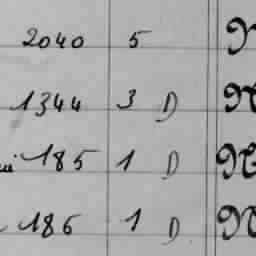 2040 5
1344 3 D
185 1 D
186 1 D